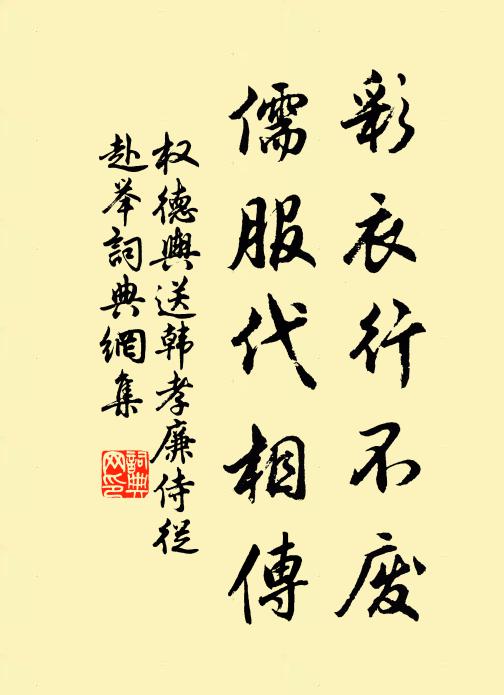 彩衣行不废
儒服代相傳
权德輿送韩孝廉侍從
赴举詞典網集
詞典网印